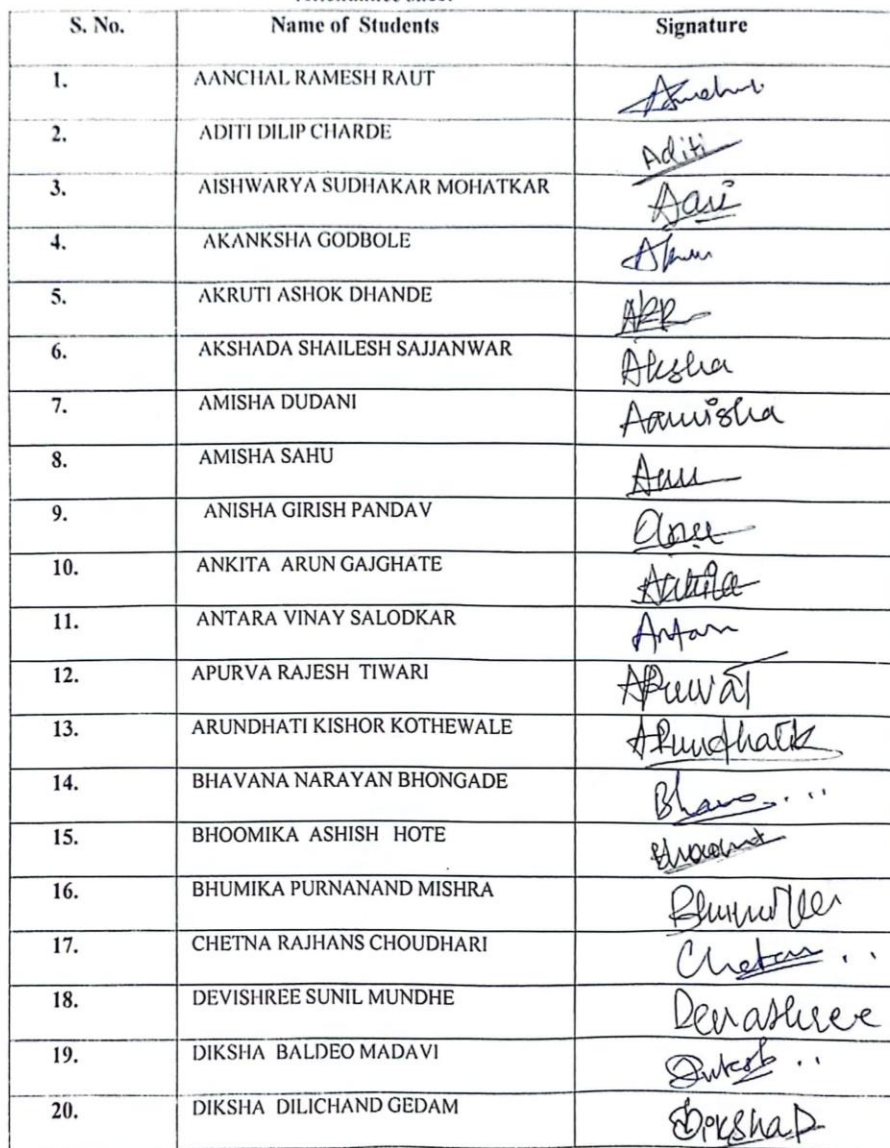 Attendance Sheet
S. No. Name of Students Signature
1. AANCHAL RAMESH RAUT
2. ADITI DILIP CHARDE Aditi
3. AISHWARYA SUDHAKAR MOHATKAR
4. AKANKSHA GODBOLE
5. AKRUTI ASHOK DHANDE
6. AKSHADA SHAILESH SAJJANWAR Aksha
7. AMISHA DUDANI Aamisha
8. AMISHA SAHU
9. ANISHA GIRISH PANDAV
10. ANKITA ARUN GAJGHATE
11. ANTARA VINAY SALODKAR Antara
12. APURVA RAJESH TIWARI
13. ARUNDHATI KISHOR KOTHEWALE
14. BHAVANA NARAYAN BHONGADE
15. BHOOMIKA ASHISH HOTE
16. BHUMIKA PURNANAND MISHRA
17. CHETNA RAJHANS CHOUDHARI
18. DEVISHREE SUNIL MUNDHE Devashree
19. DIKSHA BALDEO MADAVI
20. DIKSHA DILICHAND GEDAM